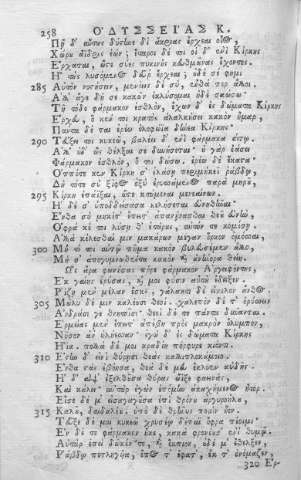 258 ὈΔΥΣΣΕΙΑΣ Κ.
Πῆ δ' αὕτως δύστηνε δι' ἄκριας ἔρχεαι οἶος,
Χώρου ἄϊδρις ἐών; ἕταροι δέ τοι οἵ δ' ἐνὶ Κίρκης
Ἔρχαται, ὥστε σύες πυκινοὺς κευθμῶνας ἔχοντες.
Ἦ τοὺς λυσόμενος δεῦρ' ἔρχεαι; οὐδέ σέ φημι
285 Αὐτὸν νοστήσειν, μενέεις δὲ σύ γ' ἔνθα περ ἄλλοι.
Ἀλλ' ἄγε δή σε κακῶν ἐκλύσομαι ἠδὲ σαώσω·
Τῆ τόδε φάρμακον ἐσθλὸν, ἔχων ἐς δώματα Κίρκης
Ἔρχευ, ὅ κέν τοι κρατὸς ἀλάλκῃσιν κακὸν ἦμαρ,
Πάντα δέ τοι ἐρέω ὀλοφώϊα δήνεα Κίρκης·
290 Τεύξει τοι κυκεῶ, βαλέει δ' ἐν φάρμακα σίτῳ·
Ἀλλ' οὐδ' ὧς θέλξαι σε δυνήσεται· οὐ γὰρ ἐάσει
Φάρμακον ἐσθλὸν, ὅ τοι δώσω, ἐρέω δὲ ἕκαστα·
Ὁππότε κεν Κίρκη σ' ἐλάσῃ περιμήκεϊ ῥάβδῳ,
Δὴ τότε σὺ ξίφος ὀξὺ ἐρυσσάμενος παρὰ μηροῦ,
295 Κίρκῃ ἐπαΐξαι, ὥστε κτάμεναι μενεαίνων·
Ἡ δέ σ' ὑποδδείσασα κελήσεται εὐνηθῆναι·
Ἔνθα σὺ μηκέτ' ἔπειτ' ἀπανήνασθαι θεοῦ εὐνὴν,
Ὄφρα κέ τοι λύσῃ θ' ἑτάρους, αὐτόν τε κομίσσῃ·
Ἀλλὰ κέλεσθαί μιν μακάρων μέγαν ὅρκον ὀμόσσαι,
300 Μή τί τοι αὐτῷ πῆμα κακὸν βουλευσέμεν ἄλλο,
Μή σ' ἀπογυμνωθέντα κακὸν καὶ ἀνήνορα θείη.
Ὣς ἄρα φωνήσας πόρε φάρμακον Ἀργειφόντης,
Ἐκ γαίης ἐρύσας, καί μοι φύσιν αὐτοῦ ἔδειξεν·
Ῥίζῃ μὲν μέλαν ἔσκε, γάλακτι δὲ εἴκελον ἄνθος·
305 Μῶλυ δέ μιν καλέουσι θεοί· χαλεπὸν δέ τ' ὀρύσσειν
Ἀνδράσι γε θνητοῖσι· θεοὶ δέ τε πάντα δύνανται.
Ἑρμείας μὲν ἔπειτ' ἀπέβη πρὸς μακρὸν ὄλυμπον,
Νῆσον ἀν' ὑλήεσσαν· ἐγὼ δ' ἐς δώματα Κίρκης
Ἤϊα· πολλὰ δέ μοι κραδίη πόρφυρε κιόντι.
310 Ἔστην δ' εἰνὶ θύρῃσι θεᾶς καλλιπλοκάμοιο·
Ἔνθα στὰς ἐβόησα, θεὰ δέ μευ ἔκλυεν αὐδῆς.
Ἡ δ' αἶψ' ἐξελθοῦσα θύρας ὤϊξε φαεινὰς,
Καὶ κάλει· αὐτὰρ ἐγὼν ἑπόμην ἀκαχήμενος ἦτορ.
Εἷσε δέ μ' εἰσαγαγοῦσα ἐπὶ θρόνου ἀργυροήλου,
315 Καλοῦ, δαιδαλέου, ὑπὸ δὲ θρῆνυς ποσὶν ἦεν·
Τεῦξε δέ μοι κυκεῶ χρυσέῳ δέπαϊ ὄφρα πίοιμι·
Ἐν δέ τε φάρμακον ἧκε, κακὰ φρονέουσ' ἐνὶ θυμῷ.
Αὐτὰρ ἐπεὶ δῶκέν τε, καὶ ἔκπιον, οὐδέ μ' ἔθελξεν,
Ῥάβδῳ πεπληγυῖα, ἔπος τ' ἔφατ', ἔκ τ' ὀνόμαζεν,
320 Ἔρ-